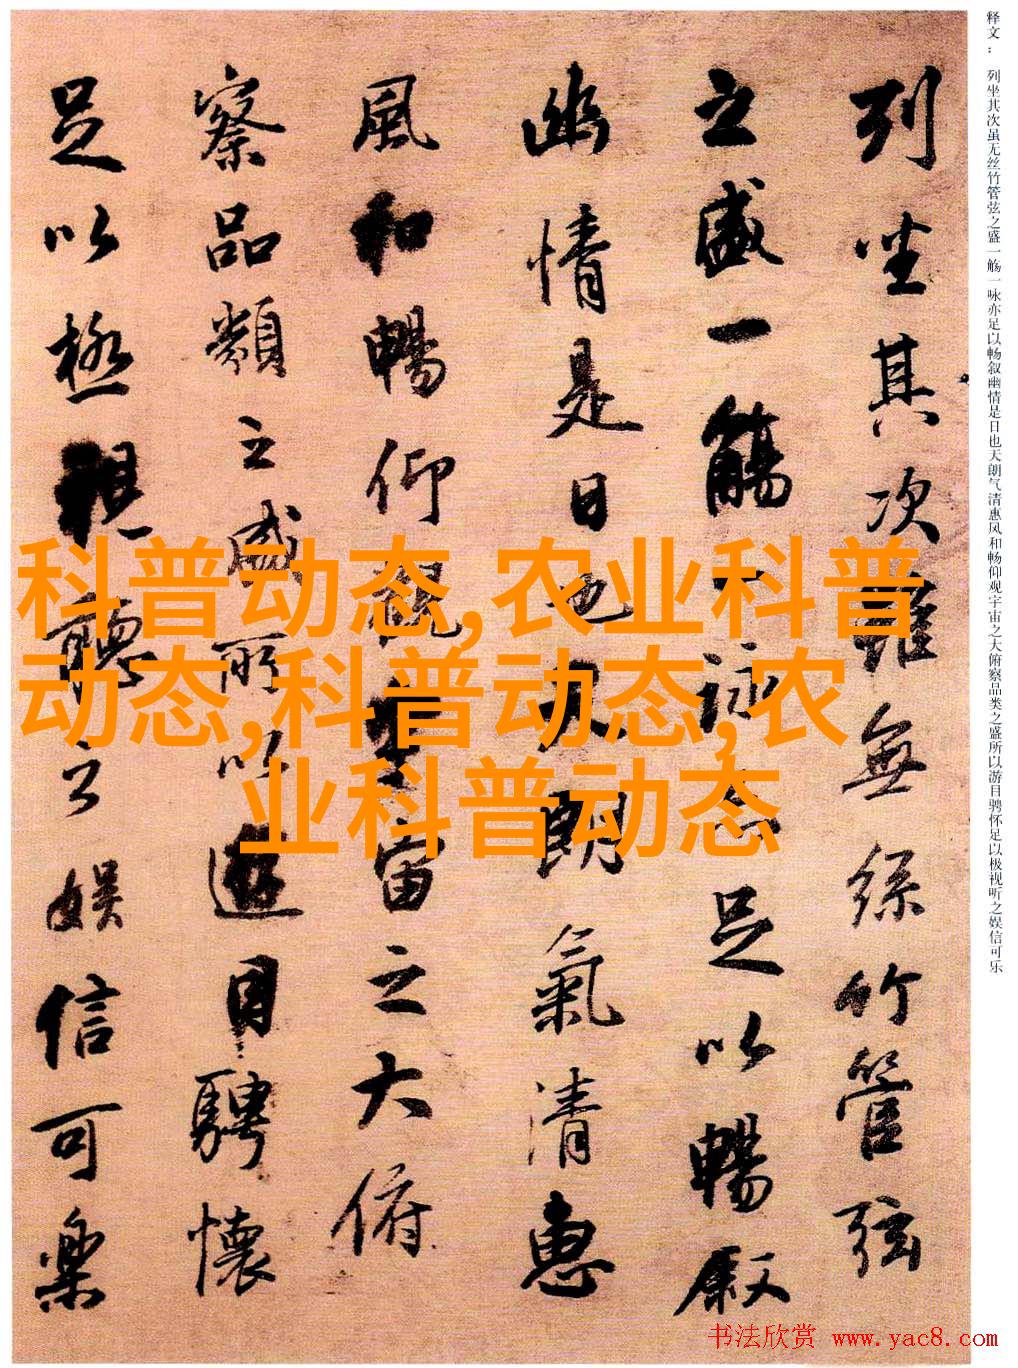 列坐其次雖無絲竹管弦
之盛一觴一詠亦足以暢叙
幽情是日也天朗氣清惠
風和暢仰觀宇宙之大俯
察品類之盛所以遊目騁懷
足以極視聽之娱信可樂
释文： 列坐其次虽无丝竹管弦之盛一觞一咏亦足以畅叙幽情是日也天朗气清惠风和畅仰观宇宙之大俯察品类之盛所以游目骋怀足以极视听之娱信可乐
科普动态,农业科普
动态,科普动态,农
业科普动态
书法欣赏 www.yac8.com